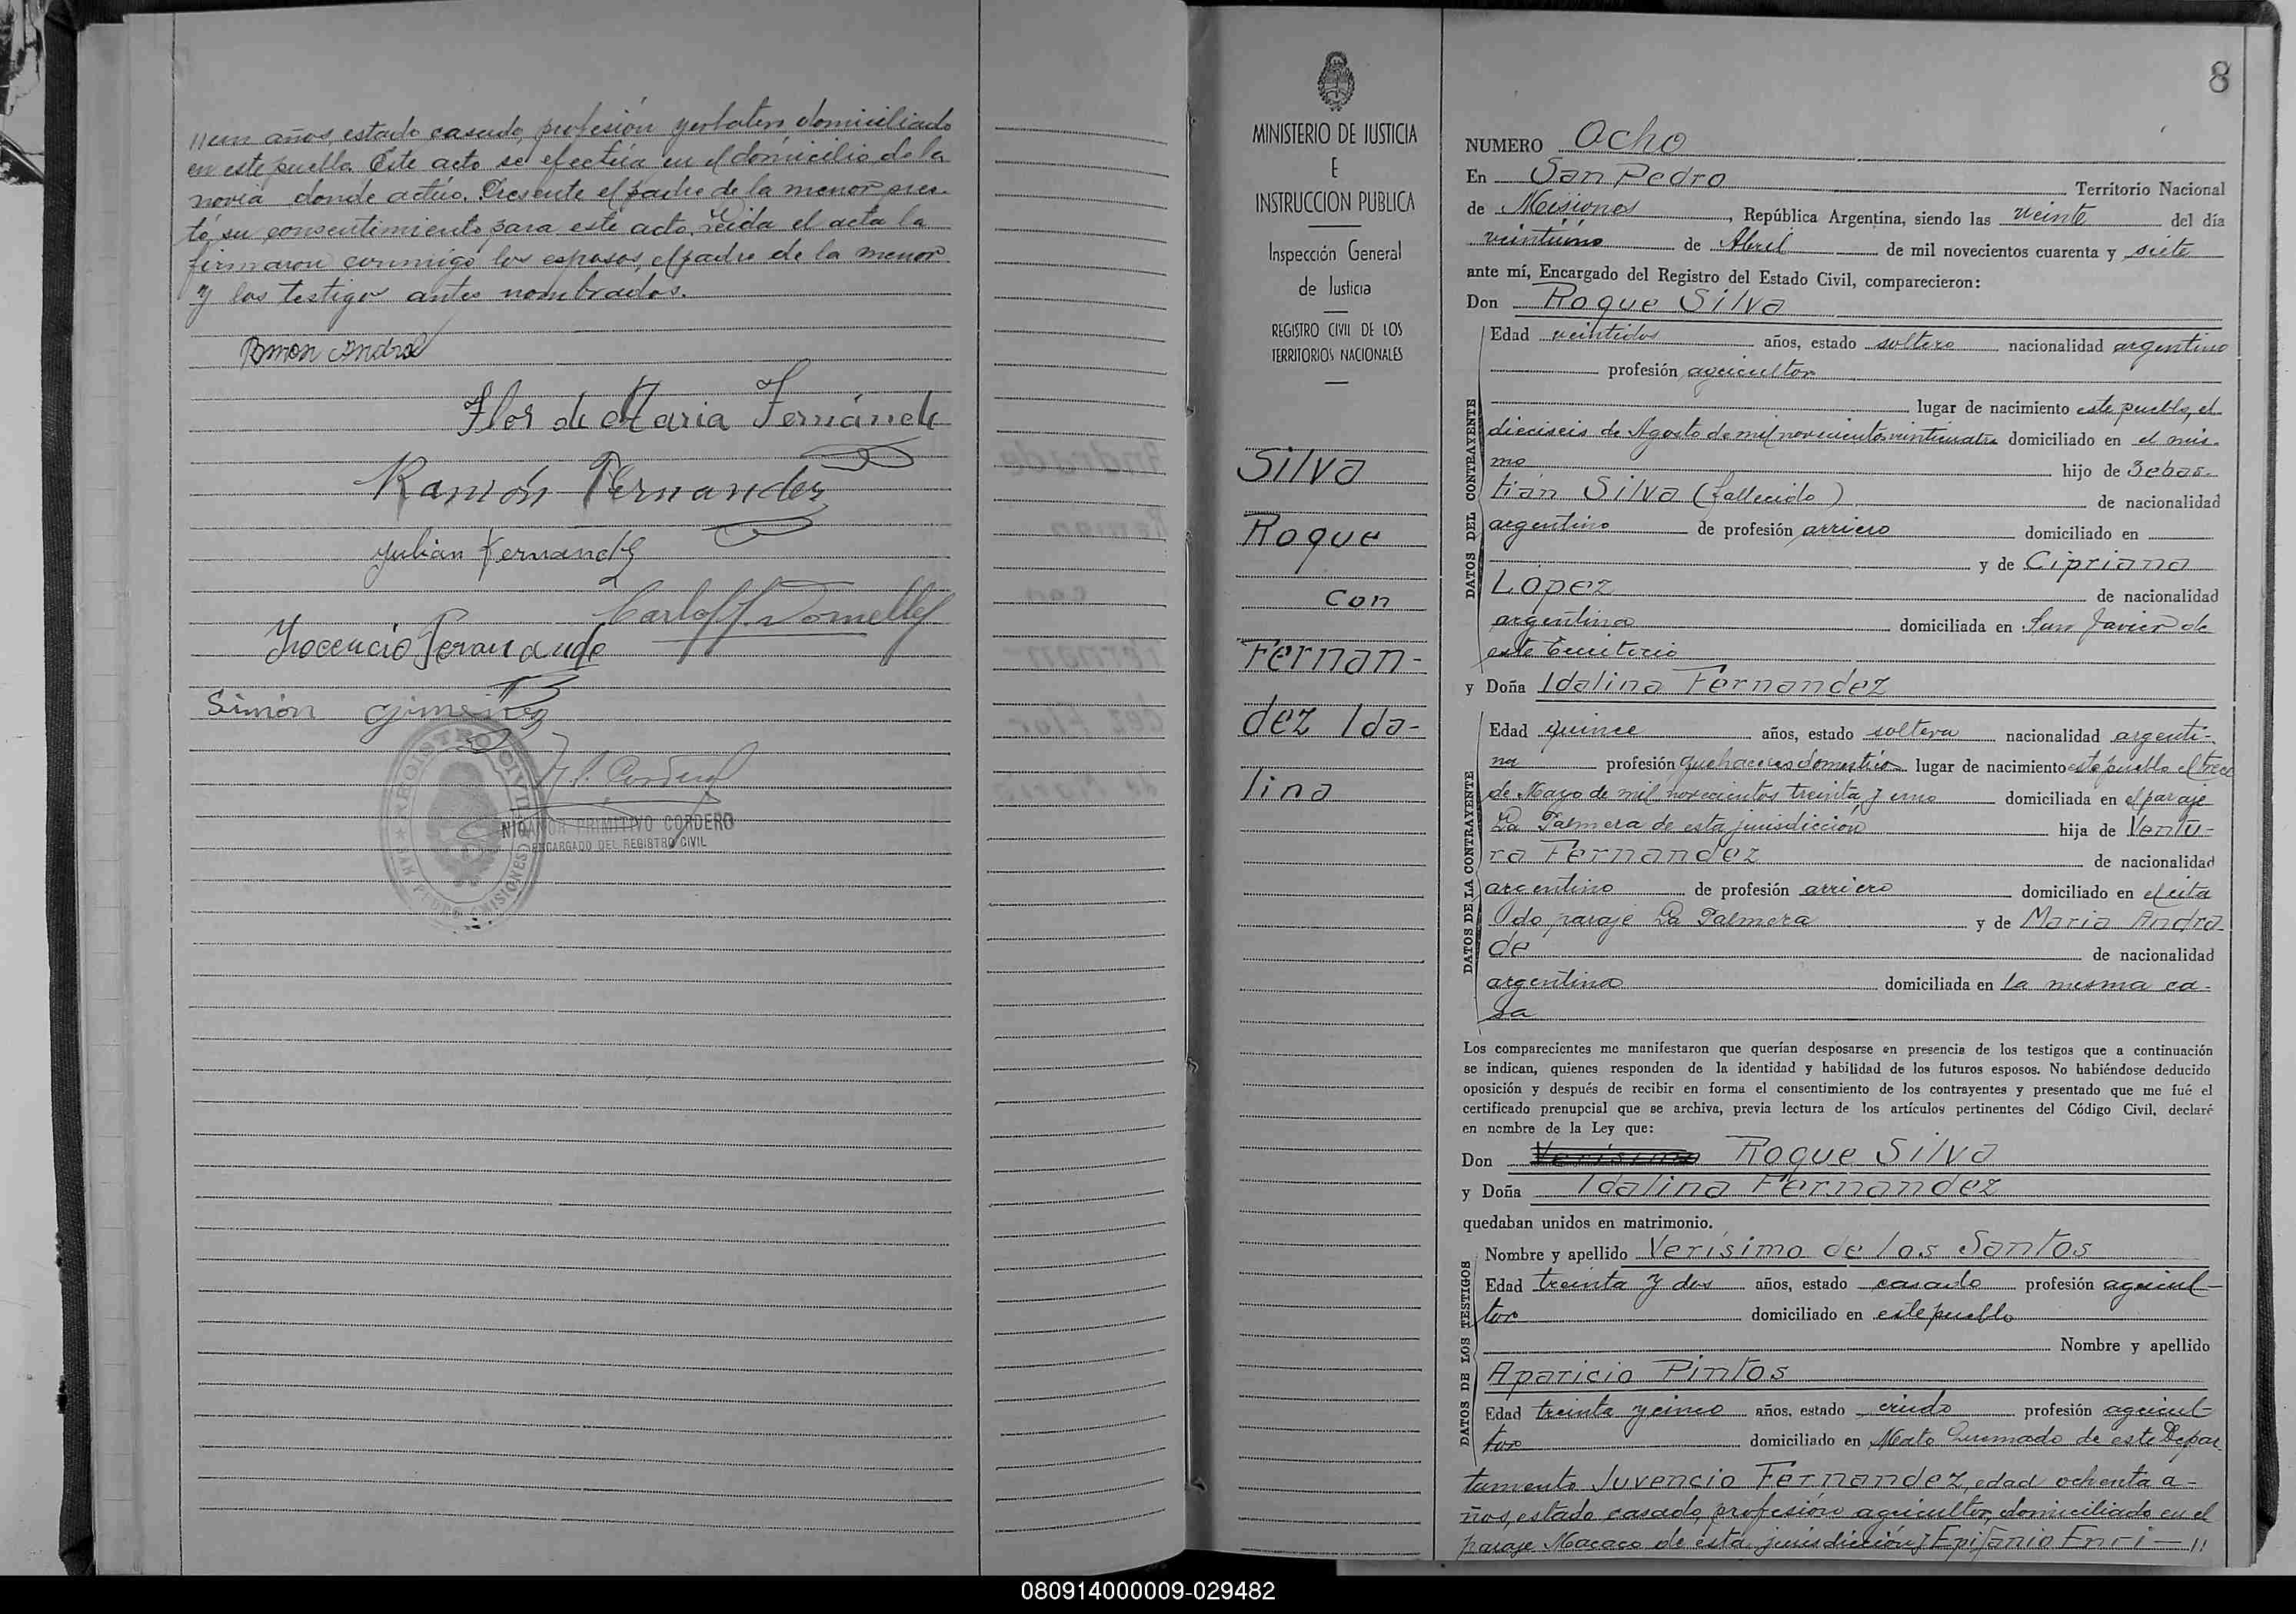 //un años, estado casado, profesión yerbatero domiciliado
en este pueblo. Este acto se efectúa en el domicilio de la
novia donde actúo. Presente el padre de la menor pres-
tó su consentimiento para este acto. Leida el acta la
firmaron conmigo los esposos, el padre de la menor
y los testigos antes nombrados.
Flor de Maria Fernánde
Ramón Fernandez
Julian Fernandez
Simón Gimenez
REGISTRO CIVIL
SAN PEDRO (MISIONES)
NICANOR PRIMITIVO CORDERO
ENCARGADO DEL REGISTRO CIVIL
MINISTERIO DE JUSTICIA
E
INSTRUCCION PUBLICA
Inspección General
de Justicia
REGISTRO CIVIL DE LOS
TERRITORIOS NACIONALES
Silva
Roque
con
Fernan-
dez Ida-
lina
8
NUMERO Ocho
En San Pedro Territorio Nacional
de Misiones, República Argentina, siendo las veinte del día
veintiuno de Abril de mil novecientos cuarenta y siete
ante mí, Encargado del Registro del Estado Civil, comparecieron:
Don Roque Silva
DATOS DEL CONTRAYENTE
Edad veintidos años, estado soltero nacionalidad argentino
profesión agricultor
lugar de nacimiento este pueblo, el
dieciseis de Agosto de mil novecientos veinticuatro domiciliado en el mis-
mo hijo de Sebas-
tián Silva (fallecido) de nacionalidad
argentino de profesión arriero domiciliado en
y de Cipriana
López de nacionalidad
argentina domiciliada en San Javier de
este Territorio
y Doña Idalina Fernandez
DATOS DE LA CONTRAYENTE
Edad quince años, estado soltera nacionalidad argenti-
na profesión quehaceres domestico lugar de nacimiento este pueblo el trece
de Mayo de mil novecientos treinta y uno domiciliada en el paraje
La Palmera de esta jurisdiccion hija de Ventu-
ra Fernandez de nacionalidad
argentino de profesión arriero domiciliado en el cita
do paraje La Palmera y de Maria Andra
de de nacionalidad
argentina domiciliada en la misma ca-
sa
Los comparecientes me manifestaron que querían desposarse en presencia de los testigos que a continuación
se indican, quienes responden de la identidad y habilidad de los futuros esposos. No habiéndose deducido
oposición y después de recibir en forma el consentimiento de los contrayentes y presentado que me fué el
certificado prenupcial que se archiva, previa lectura de los artículos pertinentes del Código Civil, declaré
en nombre de la Ley que:
Don Verisimo Roque Silva
y Doña Idalina Fernandez
quedaban unidos en matrimonio.
DATOS DE LOS TESTIGOS
Nombre y apellido Verísimo de los Santos
Edad treinta y dos años, estado casado profesión agricul-
tor domiciliado en este pueblo
Nombre y apellido
Aparicio Pintos
Edad treinta y cinco años, estado viudo profesión agricul-
tor domiciliado en Mato Quemado de este Depar
tamento Juvencio Fernandez, edad ochenta a-
ños, estado casado, profesión agricultor, domiciliado en el
paraje Macaco de esta jurisdicción y Epifanio Enri-//
080914000009-029482